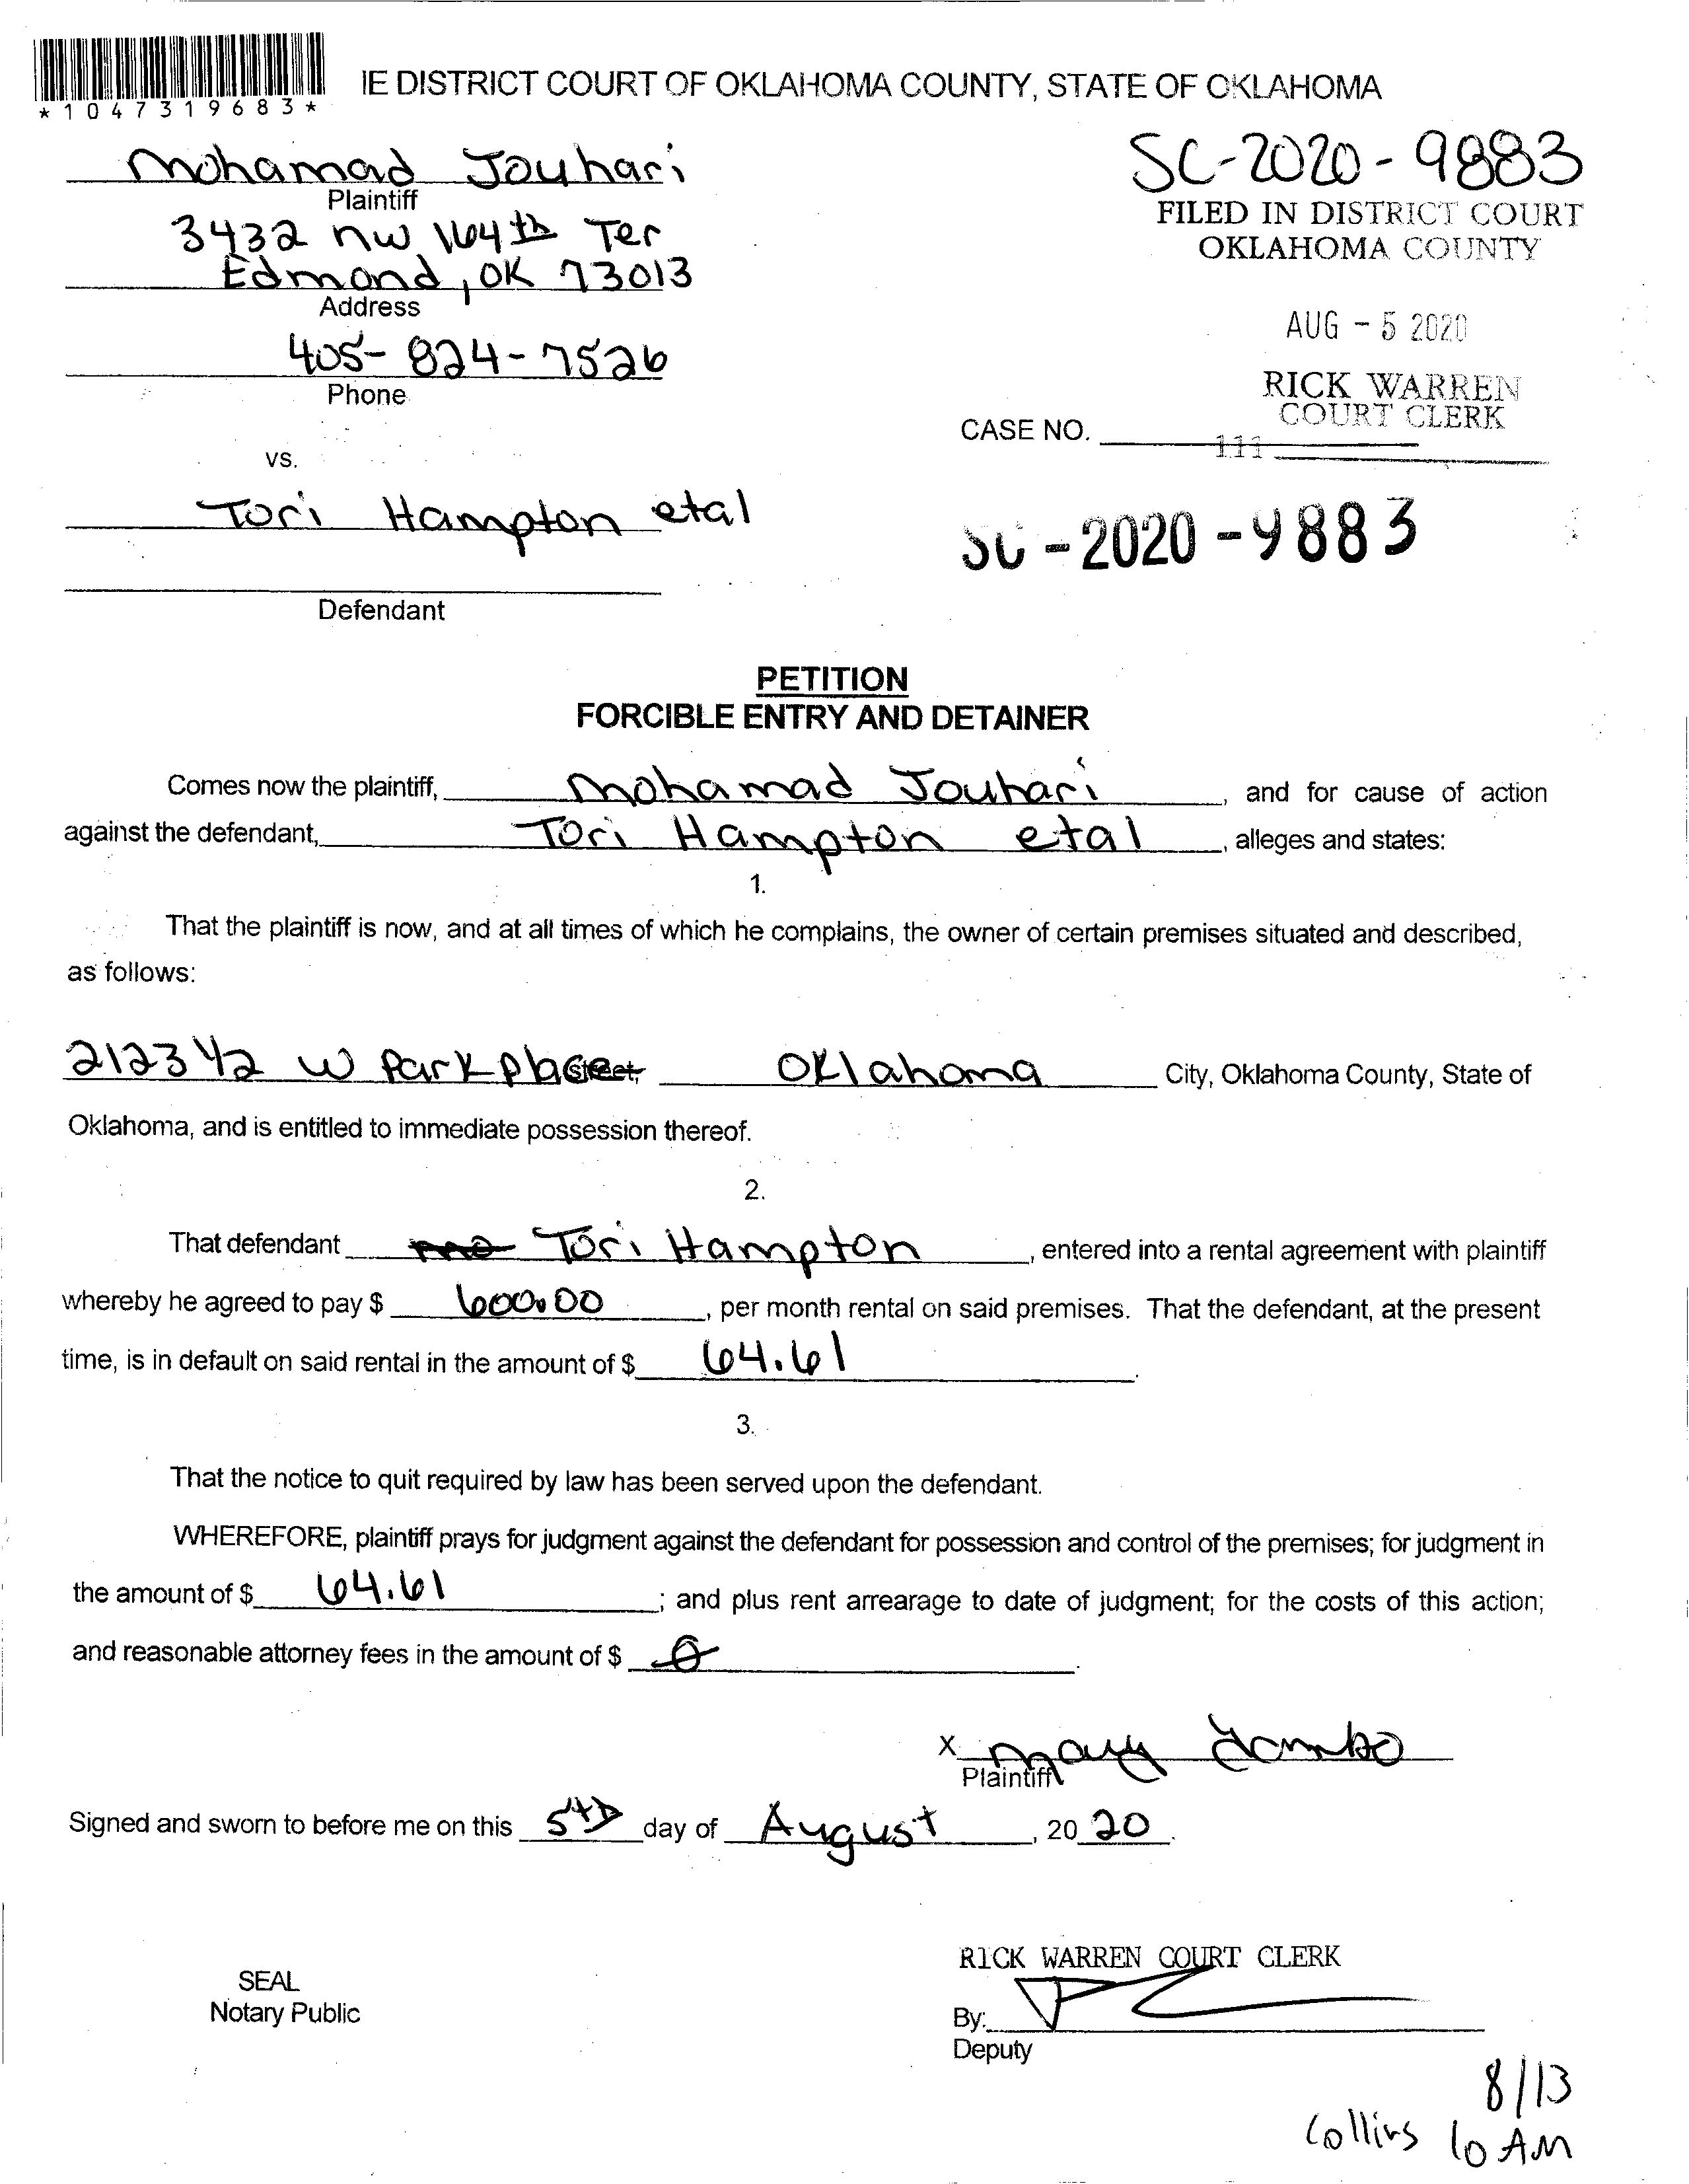 IE DISTRICT COURT OF OKLAHOMA COUNTY, STATE OF OKLAHOMA
*1047319683*
Mohamad Jouhari
Plaintiff
3432 nw 164th Ter
Edmond, OK 73013
Address
405-824-7526
Phone
vs.
Tori Hampton etal
Defendant
SC-2020-9883
FILED IN DISTRICT COURT
OKLAHOMA COUNTY
AUG - 5 2020
RICK WARREN
COURT CLERK
CASE NO.
111
SC-2020-9883
PETITION
FORCIBLE ENTRY AND DETAINER
Comes now the plaintiff, Mohamad Jouhari, and for cause of action
against the defendant, Tori Hampton etal, alleges and states:
1.
That the plaintiff is now, and at all times of which he complains, the owner of certain premises situated and described,
as follows:
2123 1/2 W Park place street, Oklahoma City, Oklahoma County, State of
Oklahoma, and is entitled to immediate possession thereof.
2.
That defendant Tori Hampton, entered into a rental agreement with plaintiff
whereby he agreed to pay $ 600.00, per month rental on said premises. That the defendant, at the present
time, is in default on said rental in the amount of $ 64.61.
3.
That the notice to quit required by law has been served upon the defendant.
WHEREFORE, plaintiff prays for judgment against the defendant for possession and control of the premises; for judgment in
the amount of $ 64.61; and plus rent arrearage to date of judgment; for the costs of this action;
and reasonable attorney fees in the amount of $ 0.
X Mary
Plaintiff
Signed and sworn to before me on this 5th day of August, 2020.
SEAL
Notary Public
RICK WARREN COURT CLERK
By:
Deputy
8/13
Collins 10 AM